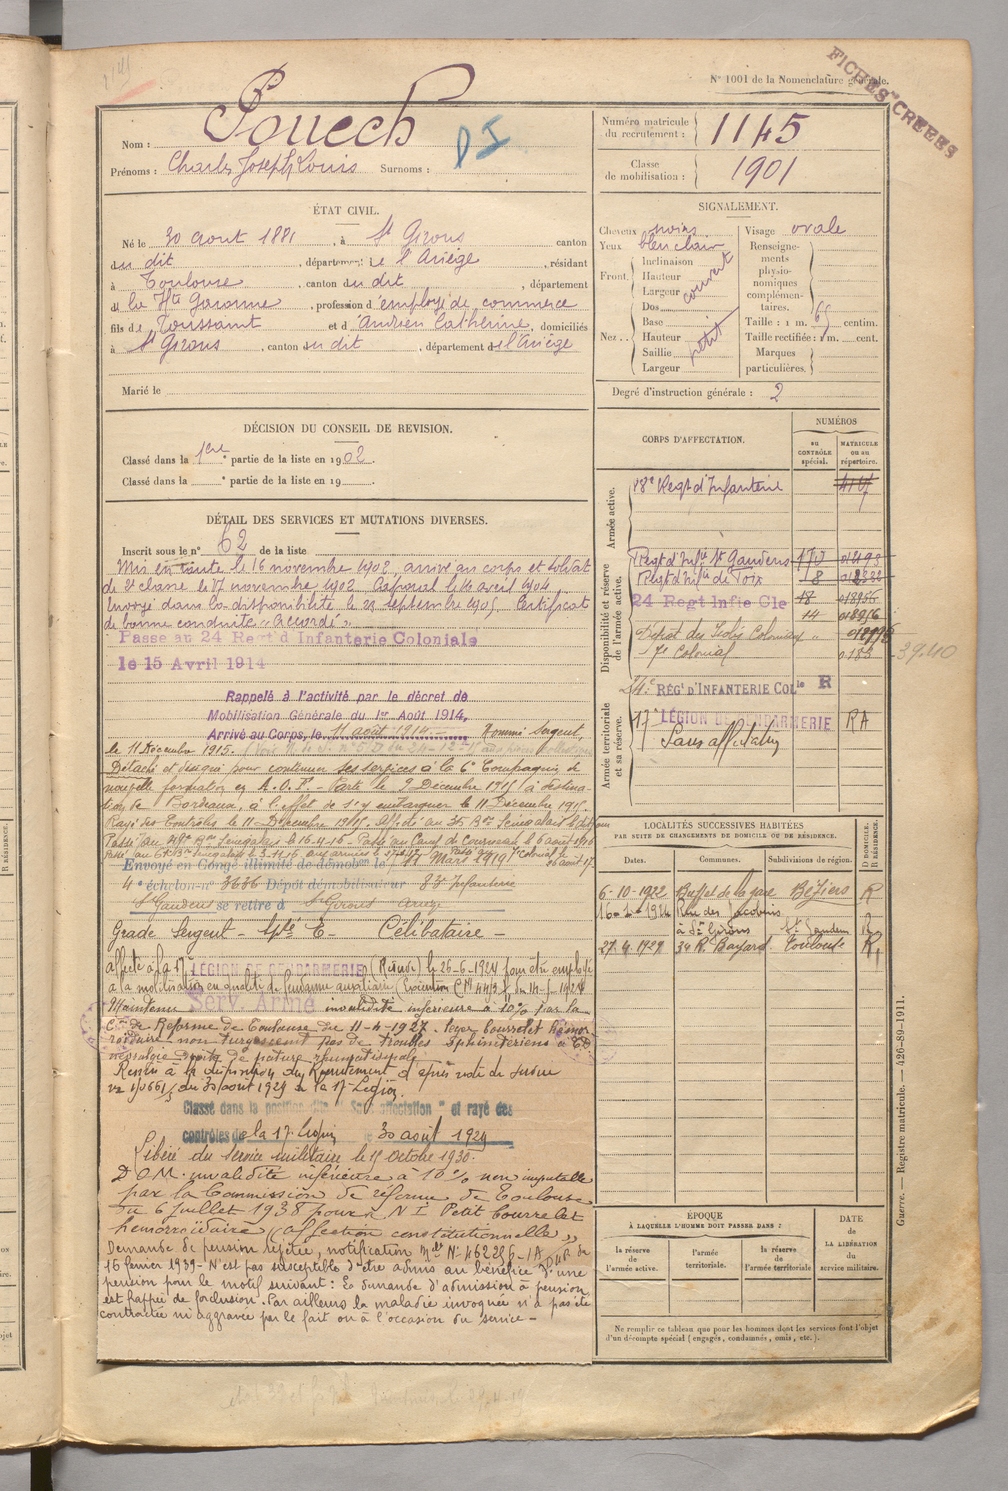 N° 1001 de la Nomenclature générale.
FICHES CRÉÉES
Nom : Pouech
D I
Prénoms : Charles Joseph Louis Surnoms :
Numéro matricule du recrutement : 1145
Classe de mobilisation : 1901
ÉTAT CIVIL.
Né le 30 aout 1881, à St Girons canton
du dit, département de l'Ariège, résidant
à Toulouse, canton du dit, département
de la Hte Garonne, profession d'employé de commerce
fils de Toussaint et d'Andrieu Catherine, domiciliés
à St Girons, canton du dit, département de l'Ariège
Marié le
SIGNALEMENT.
Cheveux noirs
Yeux bleu clair
Front. Inclinaison
Hauteur
Largeur
couvert
Nez. Dos
Base
Hauteur
Saillie
Largeur
petit
Visage ovale
Renseignements physionomiques complémentaires.
Taille : 1 m. 65 centim.
Taille rectifiée : 1 m. cent.
Marques particulières.
Degré d'instruction générale : 2
DÉCISION DU CONSEIL DE REVISION.
Classé dans la 1ère partie de la liste en 1902.
Classé dans la e partie de la liste en 19
DÉTAIL DES SERVICES ET MUTATIONS DIVERSES.
Inscrit sous le n° 62 de la liste
Mis en route le 16 novembre 1902, arrivé au corps et soldat
de 2e classe le 17 novembre 1902. Caporal le 14 avril 1904
Envoyé dans la disponibilité le 23 septembre 1905. Certificat
de bonne conduite "Accordé".
Passé au 24 Regt d'Infanterie Coloniale
le 15 Avril 1914
Rappelé à l'activité par le décret de
Mobilisation Générale du 1er Août 1914,
Arrivé au Corps, le août 1914. Nommé Sergent,
le 11 Décembre 1915.
Détaché et désigné pour continuer ses services à la 6e Compagnie de
nouvelle formation en A.O.F. - Parti le 9 Décembre 1915 à destina-
tion de Bordeaux, à l'effet de s'y embarquer le 11 Décembre 1915.
Rayé des Contrôles le 11 Décembre 1915.
Envoyé en Congé illimité de démobon le Mars 1919
4e échelon n° 3636 Dépôt démobilisateur 83e Infanterie
St Gaudens se retire à St Girons Ariège
Grade Sergent - Célibataire -
affecté à la 17e LÉGION DE GENDARMERIE (Réserve) le 26-6-1924 pour être employé
à la mobilisation en qualité de gendarme auxiliaire
Maintenu Serv. Armé invalidité inférieure à 10% par la
Con de Réforme de Toulouse du 11-4-1927. Léger bourrelet hémor-
roïdaire non turgescent pas de troubles sphinctériens
névralgie droite de nature rhumatismale
Remis à la disposition du Recrutement d'après note de service
du 30 août 1929 de la 17e Légion.
Classé dans la position dite "Sans affectation" et rayé des
contrôles de la 17e Légion le 30 août 1929
Libéré du service militaire le 15 octobre 1930.
D.O.M. invalidité inférieure à 10% non imputable
par la Commission de réforme de Toulouse
du 6 juillet 1938 pour N I Petit bourrelet
hémorroïdaire (affection constitutionnelle)
Demande de pension rejetée, notification
16 février 1939 - N'est pas susceptible d'être admis au bénéfice d'une
pension pour le motif suivant : Sa demande d'admission à pension
est frappée de forclusion. Par ailleurs la maladie invoquée n'a pas été
contractée ni aggravée par le fait ou à l'occasion du service -
CORPS D'AFFECTATION.
NUMÉROS
au CONTRÔLE spécial.
MATRICULE ou au répertoire.
Armée active.
Disponibilité et réserve de l'armée active.
Armée territoriale et sa réserve.
Regt d'Infanterie
Regt d'Infie St Gaudens
Regt d'Infie de Foix 18
24 Regt Infie Cle 18
14
Dépôt des Isolés Coloniaux
7e Colonial 39.40
RÉGt D'INFANTERIE COLle R
17e LÉGION DE GENDARMERIE RA
Sans affectation
LOCALITÉS SUCCESSIVES HABITÉES
PAR SUITE DE CHANGEMENTS DE DOMICILE OU DE RÉSIDENCE.
Dates. Communes. Subdivisions de région. D DOMICILE. R RÉSIDENCE.
6-10-1922 Buffet de la gare Béziers R
1924 Rue des Jacobins
à St Girons St Gaudens R
27.4.1927 34 R. Bayard Toulouse R
ÉPOQUE
À LAQUELLE L'HOMME DOIT PASSER DANS :
la réserve de l'armée active.
l'armée territoriale.
la réserve de l'armée territoriale
DATE de LA LIBÉRATION du service militaire.
Ne remplir ce tableau que pour les hommes dont les services font l'objet
d'un décompte spécial (engagés, condamnés, omis, etc.).
Guerre. — Registre matricule. — 426-89-1911.